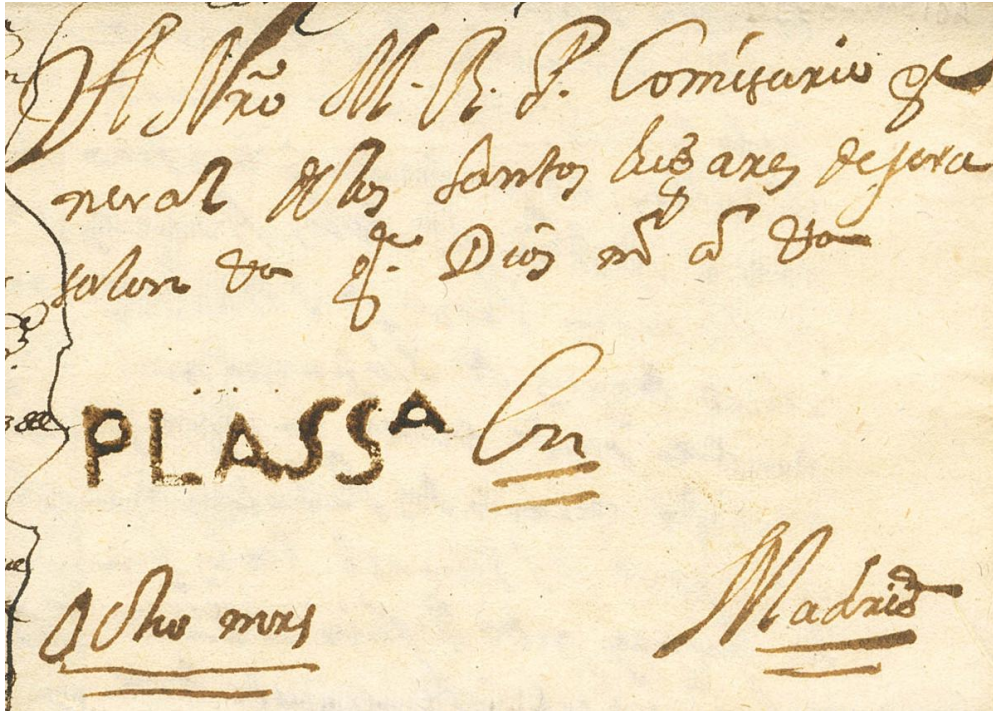 A Nrõ M. R. P. Comisario ge
neral de los Santos lugares de Jeru
salen &a g.e Dios m.s a.s &a
PLASSA En
Ocho mrs
Madrid